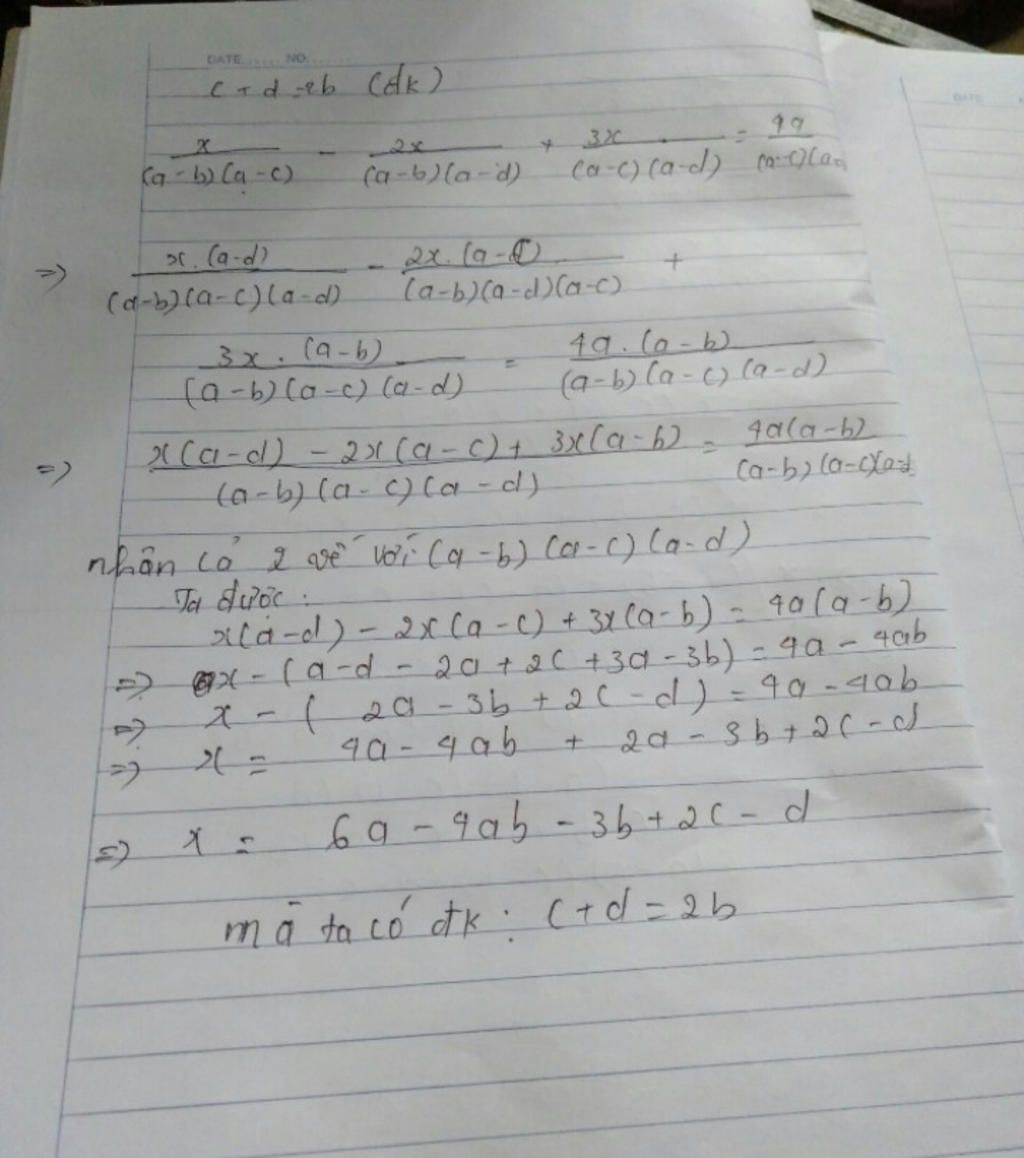 DATE...... NO.......
c + d = 2b (đk)
x/((a-b)(a-c)) - 2x/((a-b)(a-d)) + 3x/((a-c)(a-d)) = 4a/((a-c)(a-
=> x.(a-d)/((a-b)(a-c)(a-d)) - 2x.(a-c)/((a-b)(a-d)(a-c)) +
3x.(a-b)/((a-b)(a-c)(a-d)) = 4a.(a-b)/((a-b)(a-c)(a-d))
=> (x(a-d) - 2x(a-c) + 3x(a-b))/((a-b)(a-c)(a-d)) = 4a(a-b)/((a-b)(a-c)(a-d)
nhân cả 2 vế với (a-b)(a-c)(a-d)
Ta được:
x(a-d) - 2x(a-c) + 3x(a-b) = 4a(a-b)
=> x - (a-d - 2a + 2c + 3a - 3b) = 4a - 4ab
=> x - ( 2a - 3b + 2c - d) = 4a - 4ab
=> x = 4a - 4ab + 2a - 3b + 2c - d
=> x = 6a - 4ab - 3b + 2c - d
mà ta có đk: c+d = 2b
DATE